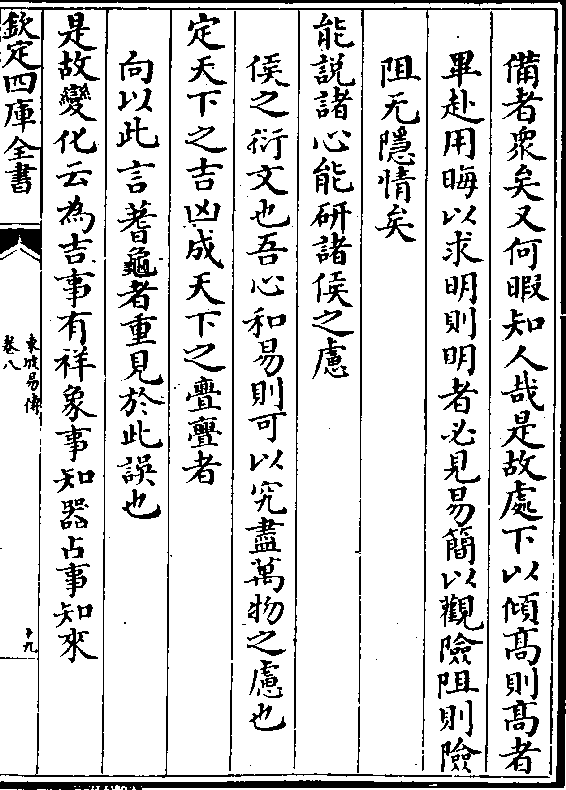 備者衆矣又何暇知人哉是故處下以傾髙則髙者
畢赴用晦以求明則明者必見易簡以觀險阻則險
阻无隱情矣
能説諸心能研諸侯之慮
侯之衍文也吾心和易則可以究盡萬物之慮也
定天下之吉凶成天下之亹亹者
向以此言蓍龜者重見於此誤也
是故變化云為吉事有祥象事知器占事知來
欽定四庫全書
東坡易傳
卷八
十九